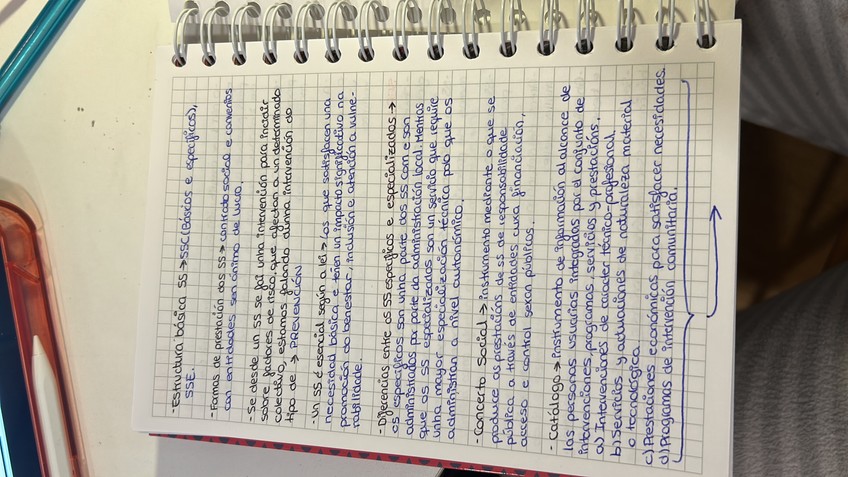 - Estructura básica SS → SSC (Básicos e específicos),
SSE.
- Formas de prestación dos SS → contrato social e convenios
con entidades sen ánimo de lucro.
- Se desde un SS se fai unha intervención para incidir
sobre factores de risco, que afectan a un determinado
colectivo, estamos falando dunha intervención do
tipo de → PREVENCIÓN
- un SS é esencial según a lei → Los que satisfacen una
necesidad básica e teñen un impacto significativo na
promoción do benestar, inclusión e atención a vulne-
rabilidade.
- Diferencias entre os SS específicos e especializados →
os específicos son unha parte dos SS com e son
administrados po parte da administración local. Mentras
que os SS especializados son un servizo que require
unha mayor especialización técnica polo que os
administran a nivel autonómico.
- Concerto Social → instrumento mediante o que se
produce as prestacións de SS de responsabilidade
pública a través de entidades cuxa financiación,
acceso e control sexan públicos.
- Catálogo → instrumento de información al alcance de
las personas usuarias integradas por el conjunto de
intervenciones, programas, servicios y prestacions.
a) Intervenciones de carácter técnico-profesional.
b) Servicios y actuaciones de naturaleza material
o tecnológica
c) Prestaciones económicas para satisfacer necesidades.
d) Programas de intervención comunitaria.